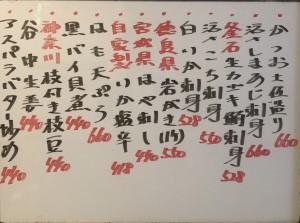 かつお土佐造り 660
活〆しまあじ刺身 550
釜石生カジキ鮪刺身 528
活〆こち刺身 550
白いか刺身 528
徳島県岩がき(1ケ) 550
宮城県ほや刺し 440
自家製いか塩辛 418
はも天ぷら 660
黒バイ貝煮 440
神奈川枝付き枝豆 440
谷中生姜 440
アスパラバター炒め 440